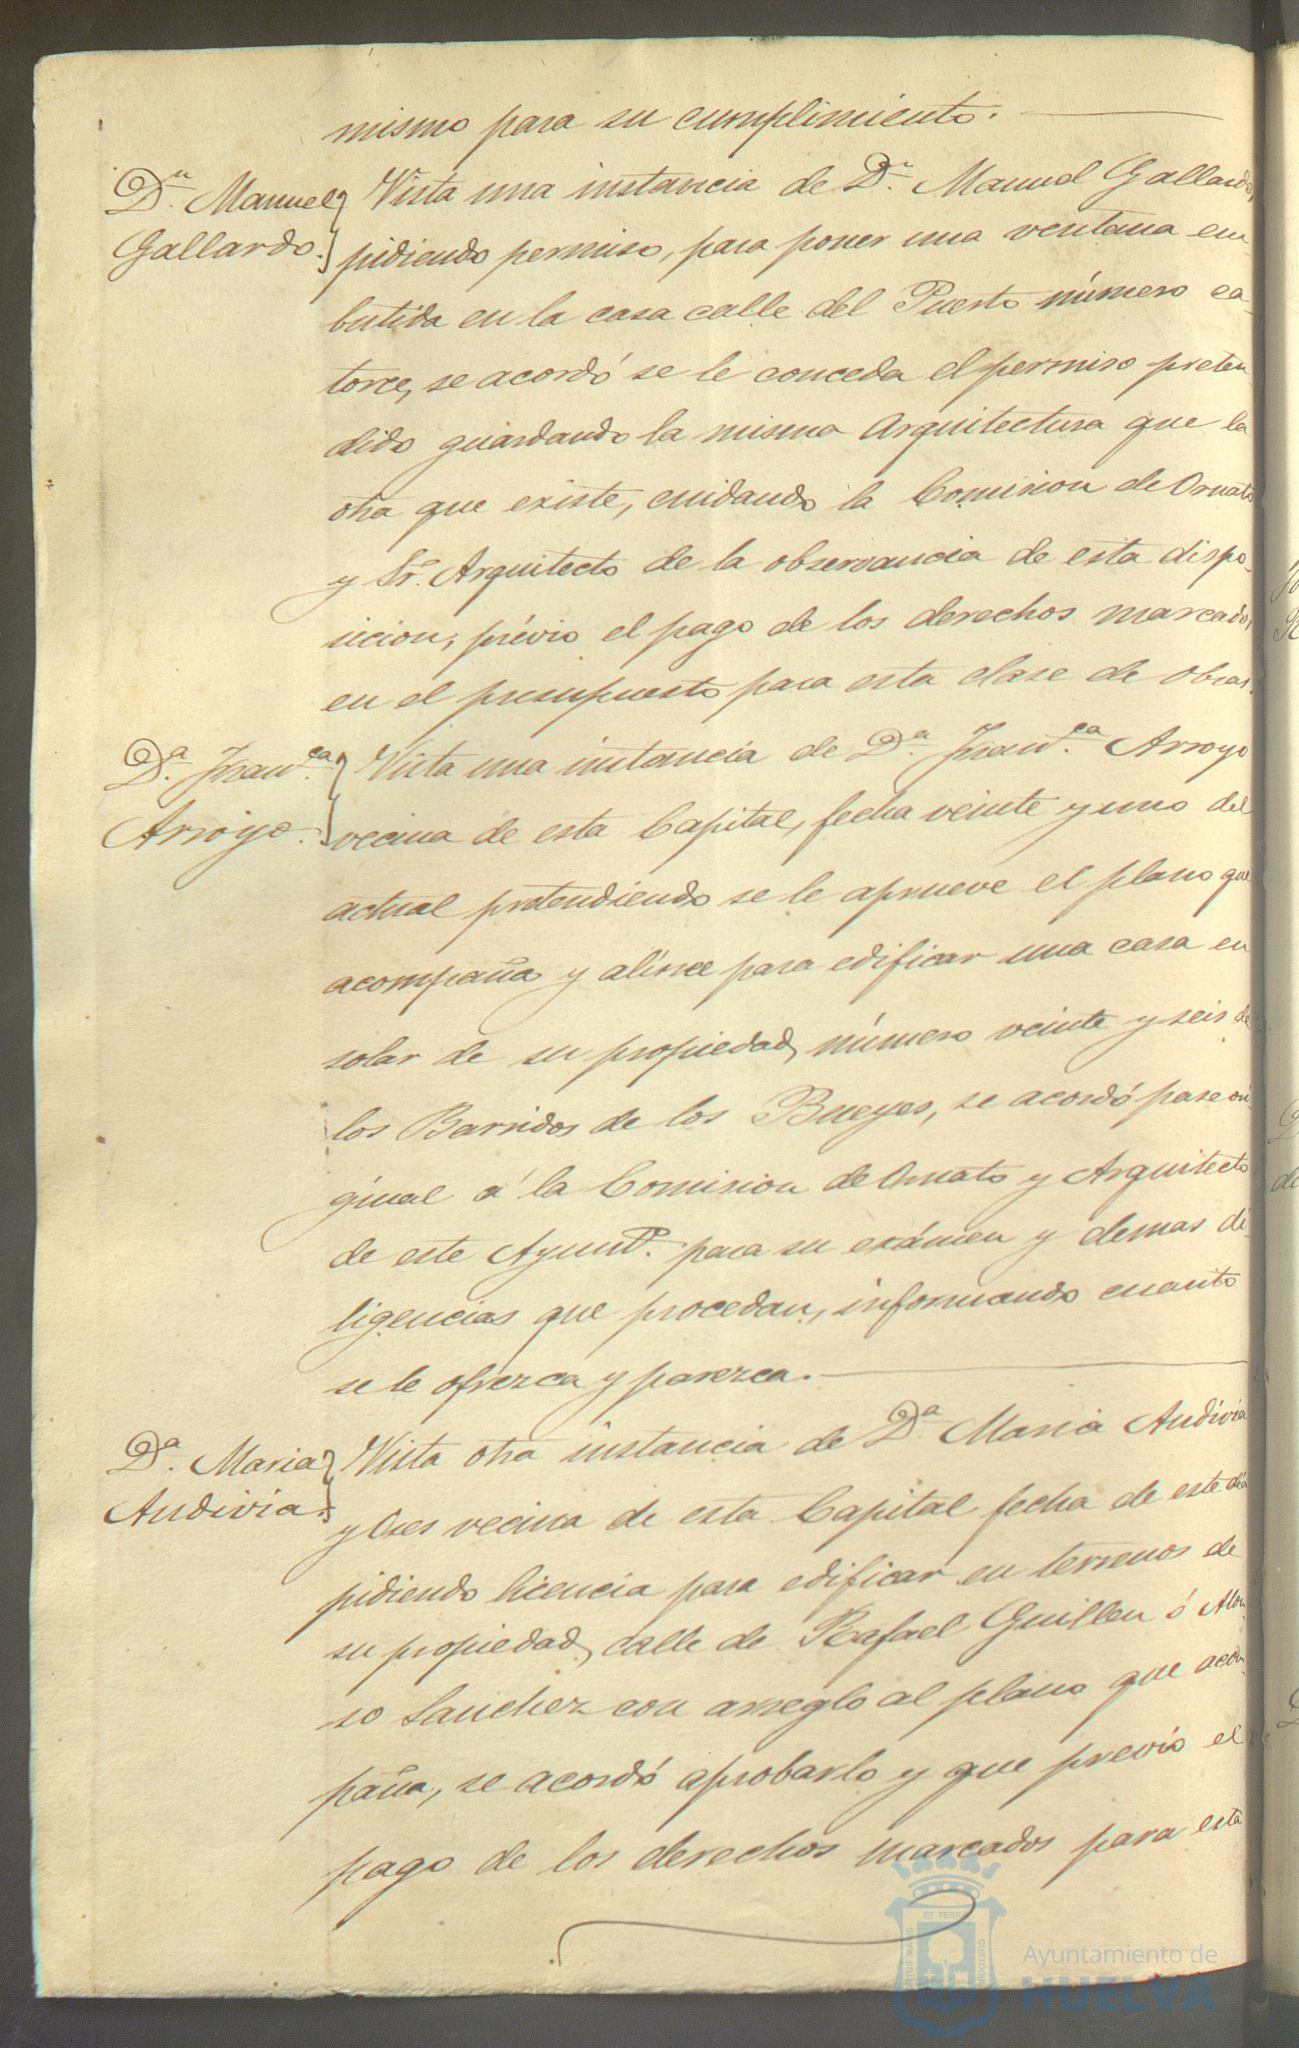 mismo para su cumplimiento.
Dn. Manuel
Gallardo.
Vista una instancia de Dn. Manuel Gallardo,
pidiendo permiso, para poner una ventana em-
butida en la casa calle del Puerto número ca-
torce, se acordó se le conceda el permiso preten
dido guardando la misma Arquitectura que la
otra que existe, cuidando la Comision de Ornato
y Sr. Arquitecto de la observancia de esta dispo-
sicion, prévio el pago de los derechos marcados,
en el presupuesto para esta clase de obras.
Da. Franca.
Arroyo.
Vista una instancia de Da. Franca. Arroyo
vecina de esta Capital, fecha veinte y uno del
actual pretendiendo se le aprueve el plano que
acompaña y alinee para edificar una casa en
solar de su propiedad, número veinte y seis de
los Barridos de los Bueyes, se acordó pase ori-
ginal á la Comision de Ornato y Arquitecto
de este Ayunto. para su exámen y demas di-
ligencias que procedan, informando cuanto
se le ofrezca y parezca.
Da. Maria
Audivia.
Vista otra instancia de Da. Maria Audivia
y Oses vecina de esta Capital fecha de este dia
pidiendo licencia para edificar en terrenos de
su propiedad, calle de Rafael Guillen ó Alon-
so Sanchez con arreglo al plano que acom-
paña, se acordó aprobarlo y que previo el
pago de los derechos marcados para esta
Ayuntamiento de
HUELVA